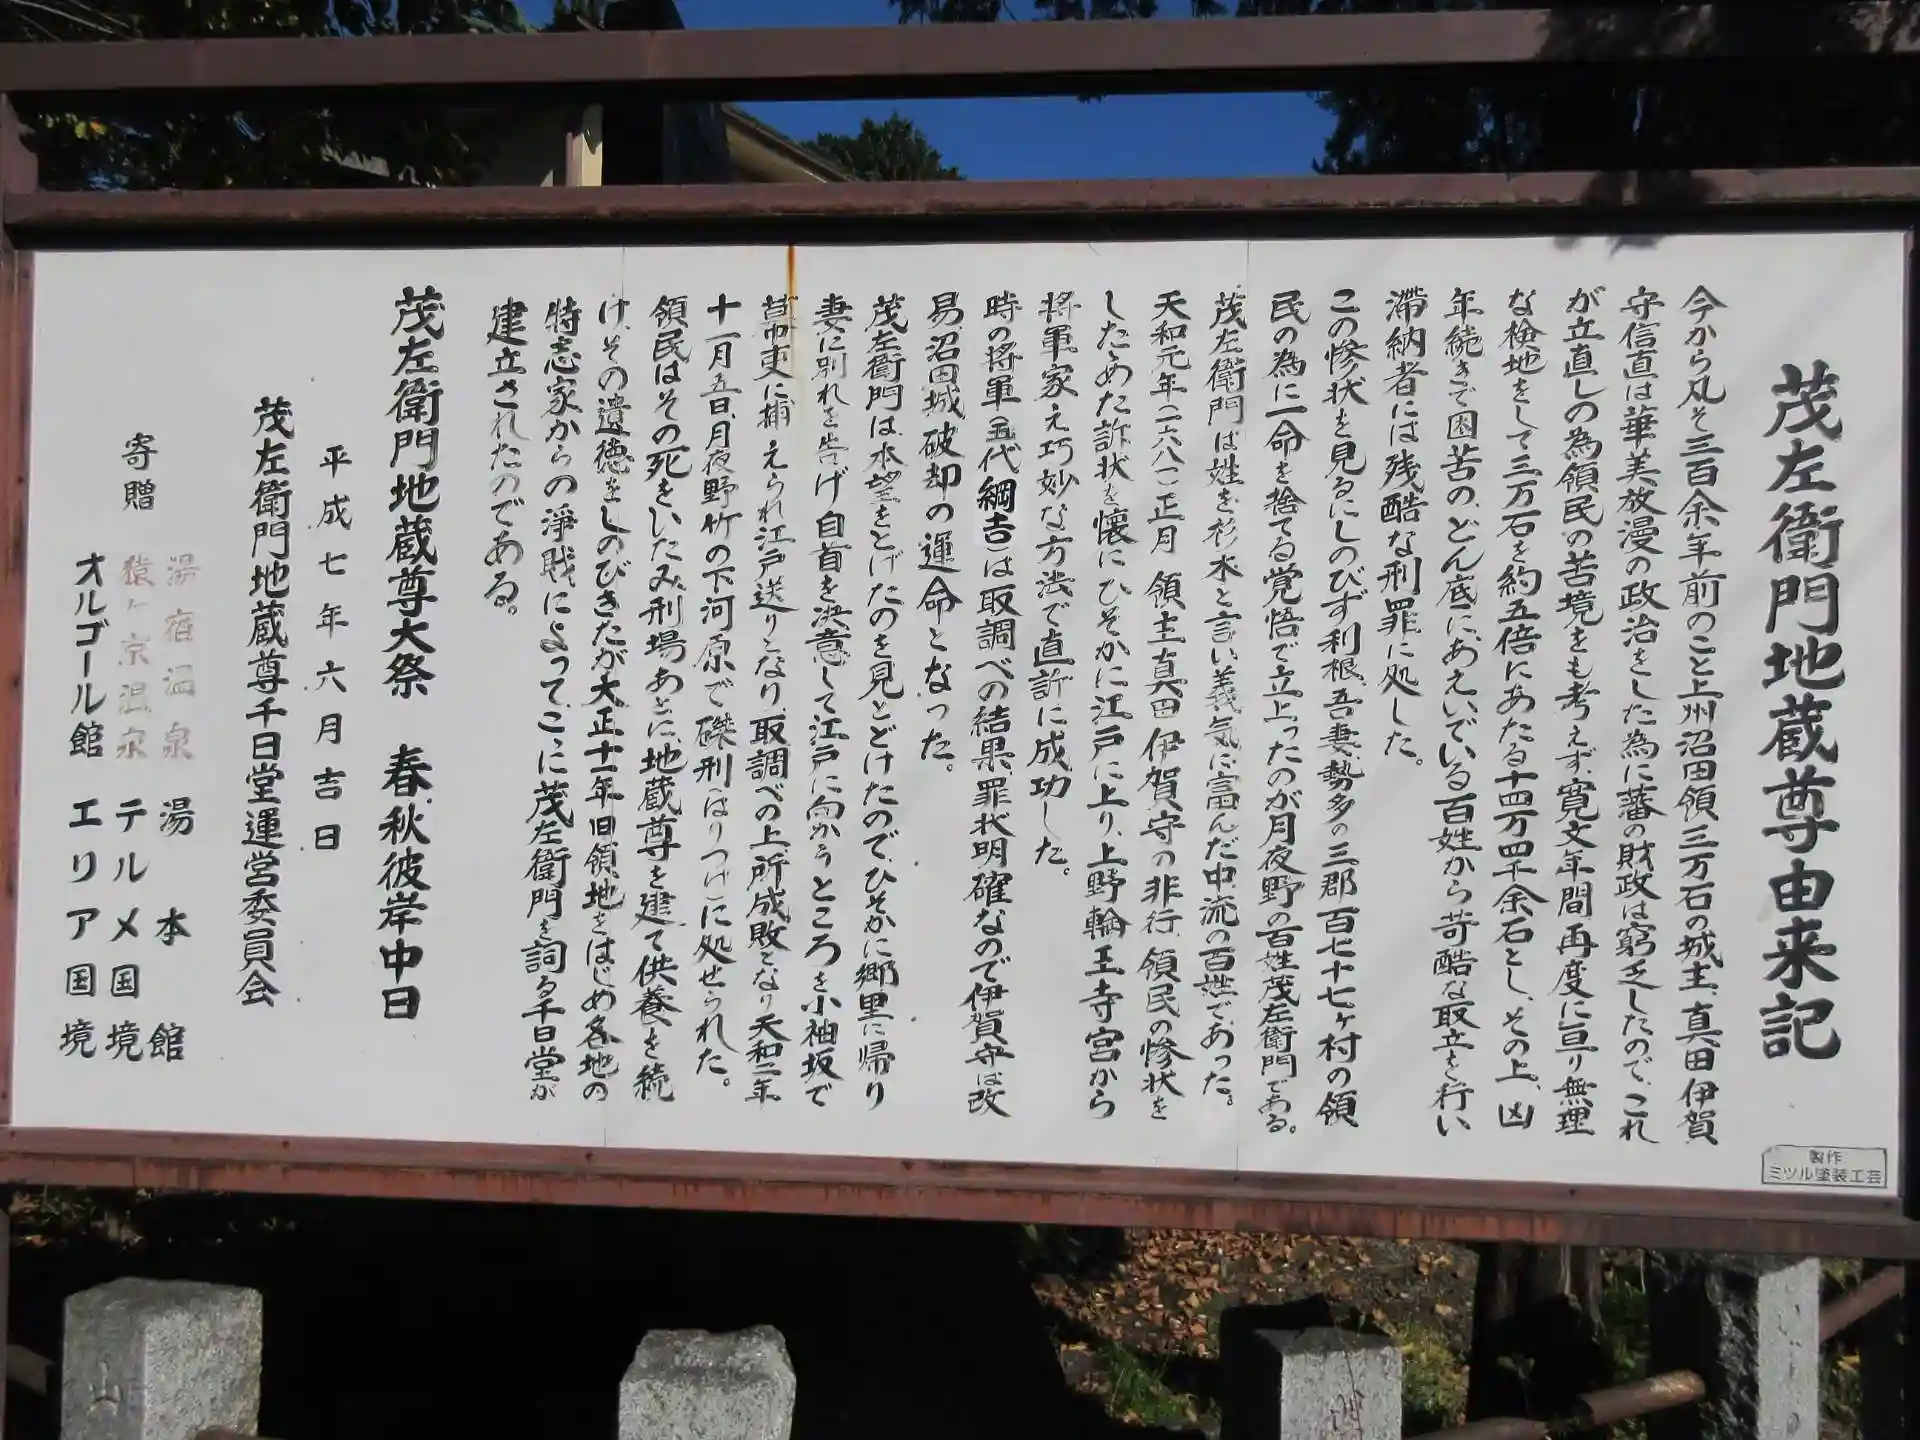 茂左衛門地蔵尊由来記
今から凡そ三百余年前のこと上州沼田領三万石の城主、真田伊賀
守信直は華美放漫の政治をした為に藩の財政は窮乏したので、これ
が立直しの為領民の苦境をも考えず、寛文年間、再度に亘り無理
な検地をして三万石を約五倍にあたる十四万四千余石とし、その上、凶
年続きで困苦の、どん底に、あえいでいる百姓から苛酷な取立を行い
滞納者には残酷な刑罪に処した。
この惨状を見るにしのびず利根、吾妻、勢多の三郡百七十七ヶ村の領
民の為に一命を捨てる覚悟で立上ったのが月夜野の百姓茂左衛門である。
茂左衛門は姓を杉木と言い義気に富んだ中流の百姓であった。
天和元年(一六八一)正月 領主真田伊賀守の非行、領民の惨状を
したためた訴状を懐にひそかに江戸に上り、上野輪王寺宮から
将軍家え巧妙な方法で直訴に成功した。
時の将軍(五代綱吉)は取調べの結果、罪状明確なので伊賀守は改
易、沼田城破却の運命となった。
茂左衛門は、本望をとげたのを見とどけたので、ひそかに郷里に帰り
妻に別れを告げ自首を決意して江戸に向かうところを小袖坂で
幕吏に捕えられ江戸送りとなり、取調べの上、所成敗となり天和二年
十一月五日、月夜野竹の下河原で磔刑(はりつけ)に処せられた。
領民はその死をいたみ、刑場あとに、地蔵尊を建て供養を続
け、その遺徳をしのびきたが大正十一年旧領地をはじめ各地の
特志家からの浄財によって、ここに茂左衛門を祠る千日堂が
建立されたのである。
茂左衛門地蔵尊大祭 春、秋彼岸中日
平成七年六月吉日
茂左衛門地蔵尊千日堂運営委員会
寄贈
湯宿温泉 湯本館
猿ヶ京温泉 テルメ国境
オルゴール館 エリア国境
製作
ミツル塗装工芸